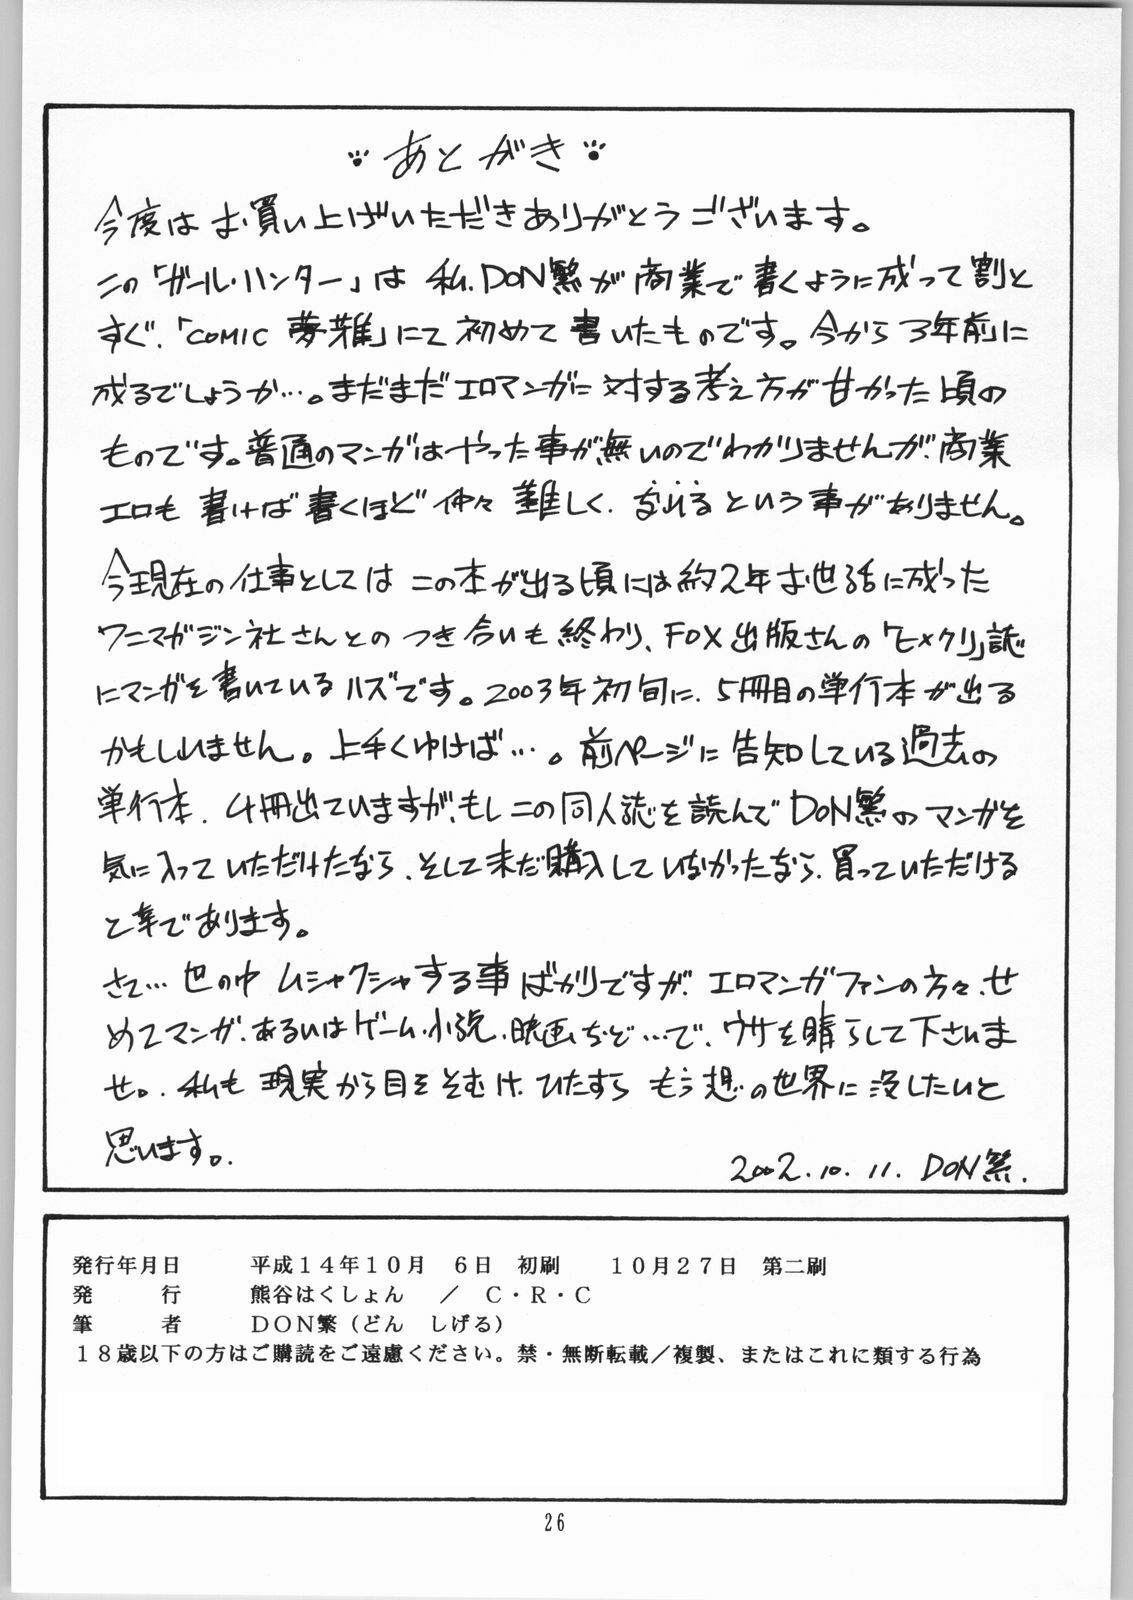 あとがき
今度はお買い上げいただきありがとうございます。
この「ガール・ハンター」は私、DON繁が商業で書くように成って割と
すぐ、「COMIC 夢雅」にて初めて書いたものです。今から3年前に
成るでしょうか…。まだまだエロマンガに対する考え方が甘かった頃の
ものです。普通のマンガはやった事が無いのでわかりませんが、商業
エロも書けば書くほど仲々難しく、なれるという事がありません。
今現在の仕事としてはこの本が出る頃には約2年お世話に成った
ワニマガジン社さんとのつき合いも終わり、FOX出版さんの「ヒメクリ」誌
にマンガを書いているハズです。2003年初旬に、5冊目の単行本が出る
かもしれません。上手くゆけば…。前ページに告知している過去の
単行本、4冊出ていますが、もしこの同人誌を読んでDON繁のマンガを
気に入っていただけたなら、そして未だ購入していなかったなら、買っていただける
と幸であります。
さて…世の中ムシャクシャする事ばかりですが、エロマンガファンの方々、せ
めてマンガ、あるいはゲーム、小説、映画など…で、ウサを晴らして下さいま
せ。私も現実から目をそむけ、ひたすらもう想の世界に没したいと
思います。
2002.10.11. DON繁.
発行年月日　平成１４年１０月　６日　初刷　１０月２７日　第二刷
発　行　熊谷はくしょん　／　Ｃ・Ｒ・Ｃ
筆　者　ＤＯＮ繁（どん　しげる）
１８歳以下の方はご購読をご遠慮ください。禁・無断転載／複製、またはこれに類する行為
26